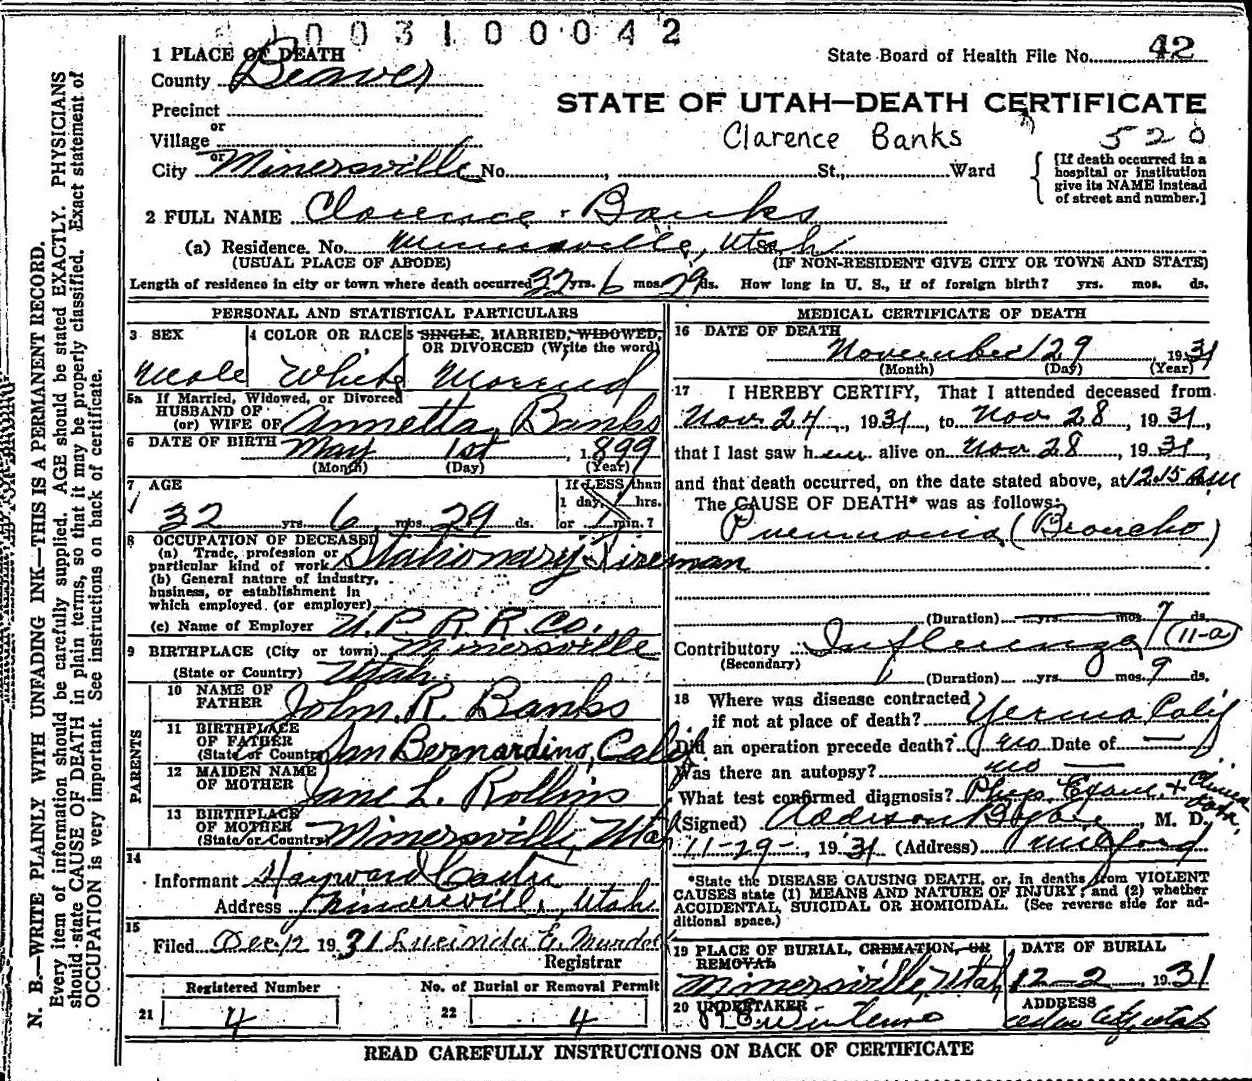 1003100042
1 PLACE OF DEATH
State Board of Health File No. 42
County Beaver
STATE OF UTAH—DEATH CERTIFICATE
Precinct
or
Village
Clarence Banks 520
or
City Minersville No. , St., Ward
[If death occurred in a
hospital or institution
give its NAME instead
of street and number.]
2 FULL NAME Clarence Banks
(a) Residence. No. Minersville, Utah
(USUAL PLACE OF ABODE) (IF NON-RESIDENT GIVE CITY OR TOWN AND STATE)
Length of residence in city or town where death occurred 32 yrs. 6 mos. 29 ds. How long in U. S., if of foreign birth? yrs. mos. ds.
PERSONAL AND STATISTICAL PARTICULARS
3 SEX
Male
4 COLOR OR RACE
White
5 SINGLE, MARRIED, WIDOWED,
OR DIVORCED (Write the word)
Married
5a If Married, Widowed, or Divorced
HUSBAND OF
(or) WIFE OF Annetta Banks
6 DATE OF BIRTH May 1st, 1899
(Month) (Day) (Year)
7 AGE
32 yrs. 6 mos. 29 ds.
If LESS than
1 day, hrs.
or min.?
8 OCCUPATION OF DECEASED
(a) Trade, profession or
particular kind of work Stationary Fireman
(b) General nature of industry,
business, or establishment in
which employed (or employer)
(c) Name of Employer U.P.R.R.Co.
9 BIRTHPLACE (City or town) Minersville
(State or Country) Utah
PARENTS
10 NAME OF
FATHER John R. Banks
11 BIRTHPLACE
OF FATHER
(State or Country) San Bernardino, Calif
12 MAIDEN NAME
OF MOTHER Jane L. Rollins
13 BIRTHPLACE
OF MOTHER
(State or Country) Minersville, Utah
14
Informant Hayward
Address Minersville, Utah
15
Filed Dec 12 1931 Lucinda E. Murdock
Registrar
Registered Number
21 4
No. of Burial or Removal Permit
22 4
MEDICAL CERTIFICATE OF DEATH
16 DATE OF DEATH
November 29, 1931
(Month) (Day) (Year)
17 I HEREBY CERTIFY, That I attended deceased from
Nov. 24, 1931, to Nov. 28, 1931,
that I last saw him alive on Nov 28, 1931,
and that death occurred, on the date stated above, at 12.15 am
The CAUSE OF DEATH* was as follows:
Pneumonia (Broncho)
(Duration) yrs. mos. 7 ds.
Contributory Influenza (11-a)
(Secondary)
(Duration) yrs. mos. 9 ds.
18 Where was disease contracted
if not at place of death? Yermo Calif
Did an operation precede death? no Date of —
Was there an autopsy? no —
What test confirmed diagnosis? Phys. Exam. + Clinical data,
(Signed) Addison M. D.
11-29-, 1931 (Address) Milford
*State the DISEASE CAUSING DEATH, or, in deaths from VIOLENT
CAUSES state (1) MEANS AND NATURE OF INJURY; and (2) whether
ACCIDENTAL, SUICIDAL OR HOMICIDAL. (See reverse side for ad-
ditional space.)
19 PLACE OF BURIAL, CREMATION, OR
REMOVAL
Minersville, Utah
DATE OF BURIAL
12-2, 1931
20 UNDERTAKER
ADDRESS
Cedar City, Utah
READ CAREFULLY INSTRUCTIONS ON BACK OF CERTIFICATE
N. B.—WRITE PLAINLY WITH UNFADING INK—THIS IS A PERMANENT RECORD.
Every item of information should be carefully supplied. AGE should be stated EXACTLY. PHYSICIANS
should state CAUSE OF DEATH in plain terms, so that it may be properly classified. Exact statement of
OCCUPATION is very important. See instructions on back of certificate.